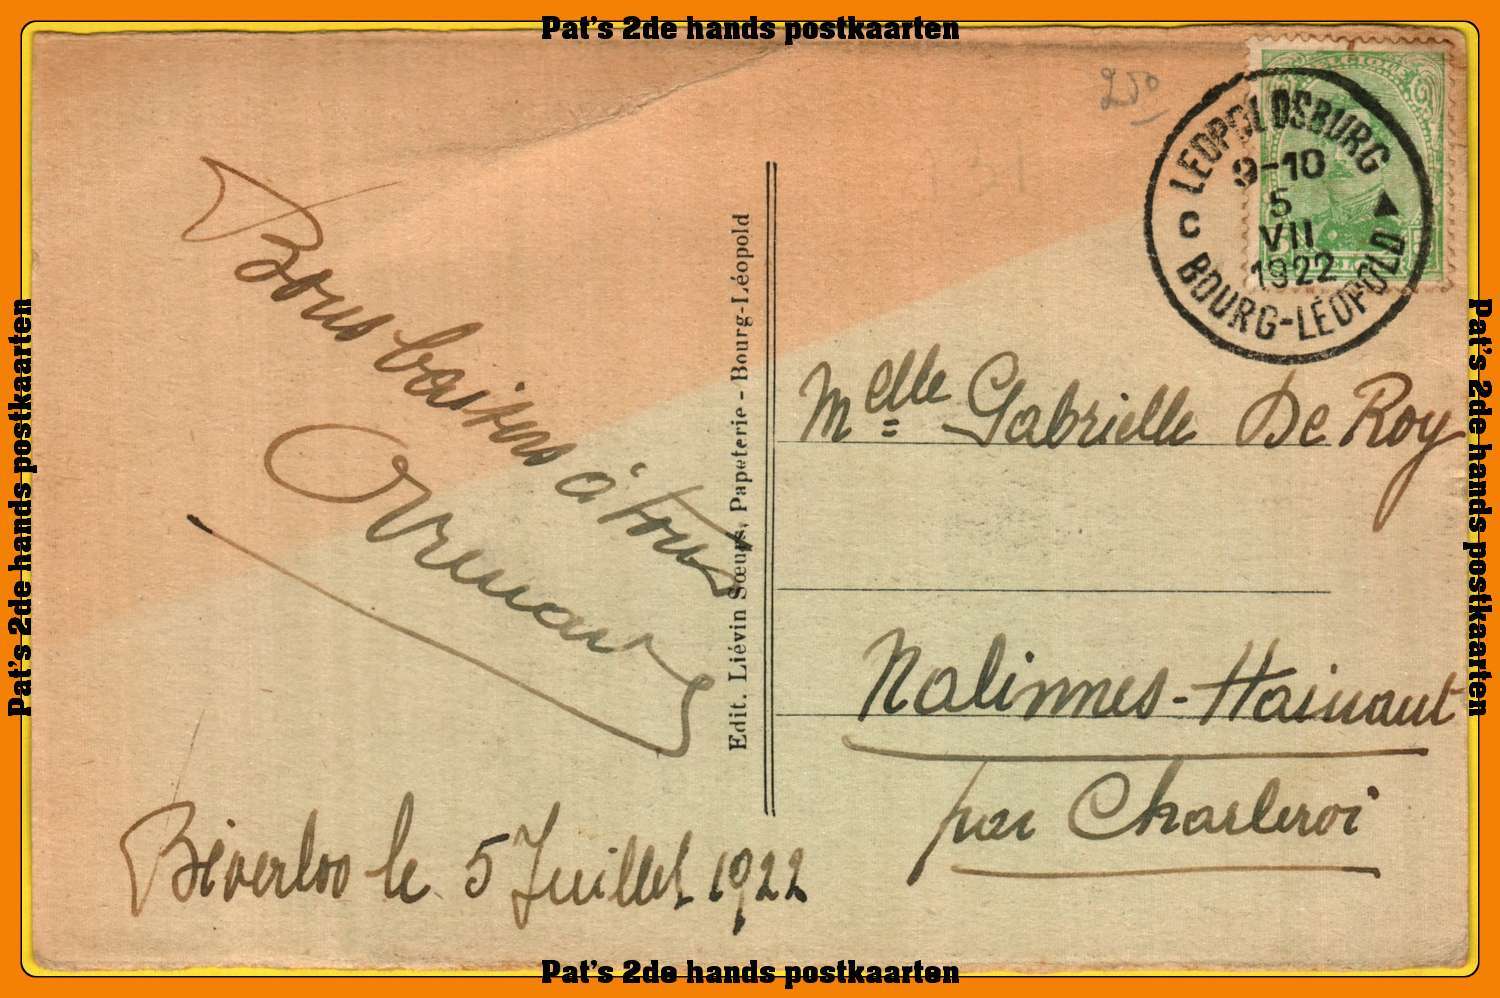 Pat's 2de hands postkaarten
250
LEOPOLDSBURG
9-10
5
VII
1922
C
BOURG-LÉOPOLD
Bons baisers à tous
Edit. Liévin Sœurs, Papeterie - Bourg-Léopold
Melle Gabrielle De Roy
Nalinnes-Hainaut
par Charleroi
Béverloo le 5 Juillet 1922
Pat's 2de hands postkaarten
Pat's 2de hands postkaarten
Pat's 2de hands postkaarten